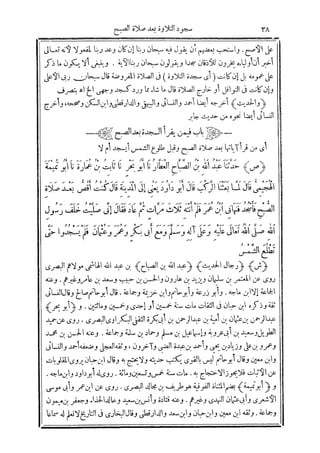 ٣٨ سجود التلاوة بعد صلاة الصبح
على الأصح . واستحب بعضهم أن يقول فيه سبحان ربنا إن كان وعد ربنا لمفعولا لأنه تعالى
أخبر أن أولياءه يخرون للأذقان سجدا ويقولون سبحان ربنا الآية . وينبغى ألا يكون ما ذكر
على عمومه بل إن كانت (أى سجدة التلاوة) فى الصلاة المفروضة قال سبحان ربى الأعلى
وإن كانت فى النوافل أو خارج الصلاة قال ما شاء مما ورد كسجد وجهى الخ اه بتصرف
﴿والحديث﴾ أخرجه أيضا أحمد والنسائى والبيهقى والدارقطنى وابن السكن وصححه، وأخرج
النسائى أيضا نحوه من حديث جابر
باب فيمن يقرأ السجدة بعد الصبح
أى من قرأ آياتها بعد صلاة الصبح وقبل طلوع الشمس أيسجد أم لا
﴿ص﴾ حَدَّثَنَا عَبْدُ اللهِ بْنُ الصَّبَّاحِ الْعَطَّارُ نَا أَبُو بَحْرٍ نَا ثَابِتُ بْنُ عُمَارَةَ نَا أَبُو تَمِيمَةَ
الْهُجَيْمِىُّ قَالَ لَمَّا بَعَثْنَا الرَّكْبَ قَالَ أَبُو دَاوُدَ يَعْنِى إِلَى الْمَدِينَةِ قَالَ كُنْتُ أَقُصُّ بَعْدَ صَلَاةِ
الصُّبْحِ فَأَسْجُدُ فَنَهَانِى ابْنُ عُمَرَ فَلَمْ أَنْتَهِ ثَلَاثَ مَرَّاتٍ ثُمَّ عَادَ فَقَالَ إِنِّى صَلَّيْتُ خَلْفَ رَسُولِ
اللهِ صَلَّى اللهُ تَعَالَى عَلَيْهِ وَعَلَى آلِهِ وَسَلَّمَ وَمَعَ أَبِى بَكْرٍ وَعُمَرَ وَعُثْمَانَ فَلَمْ يَسْجُدُوا حَتَّى
تَطْلُعَ الشَّمْسُ
﴿ش﴾ ﴿رجال الحديث﴾ ﴿عبد الله بن الصباح﴾ بن عبد الله الهاشمى مولاهم البصرى
روى عن المعتمر بن سليمان ويزيد بن هارون والحسن بن حبيب وسعيد بن عامر وغيرهم . وعنه
الجماعة إلا ابن ماجه . وأبو زرعة وأبو حاتم وابن خزيمة وجماعة . قال أبو حاتم صالح وقال النسائى
ثقة وذكره ابن حبان فى الثقات مات سنة خمسين أو إحدى وخمسين ومائتين . و ﴿أبو بحر﴾
عبد الرحمن بن عثمان بن أمية بن عبد الرحمن بن أبى بكرة الثقفى البكراوى البصرى . روى عن حميد
الطويل وسعيد بن أبى عروبة وإسماعيل بن مسلم وحماد بن سلمة وجماعة . وعنه الحسن بن محمد
وعمرو بن على وزياد بن يحيى وأحمد بن عبدة الضبى وآخرون . وثقه العجلى وضعفه أحمد والنسائى
وابن معين وقال أبو حاتم ليس بالقوى يكتب حديثه ولا يحتج به وقال ابن حبان يروى المقلوبات
عن الأثبات فلا يجوز الاحتجاج به . مات سنة خمس وتسعين ومائة . روى له أبو داود وابن ماجه .
و ﴿أبو تميمة﴾ بفتح المثناة الفوقية هو طريف بن مجالد البصرى . روى عن ابن عمر وأبى موسى
الأشعرى وأبى عثمان النهدى وغيرهم . وعنه قتادة وأنس بن سعيد وخالد الحذاء وجعفر بن ميمون
وجماعة . وثقه ابن معين وابن حبان وابن سعد والدارقطنى وقال البخارى فى التاريخ لا نعلم له سماعا